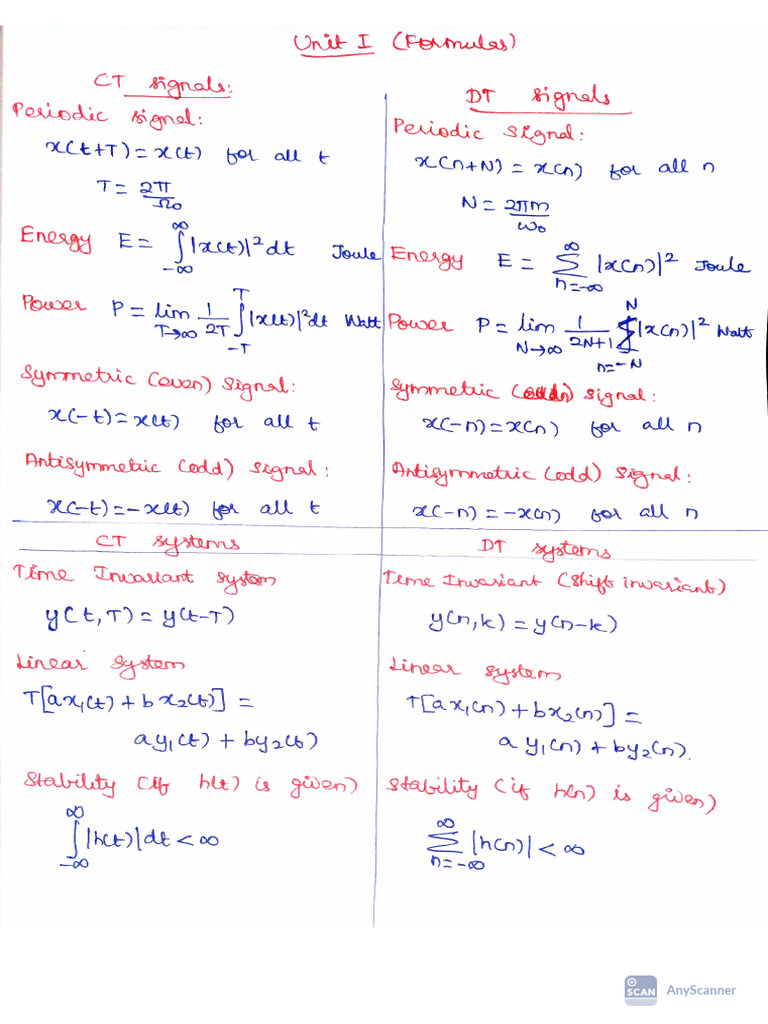 Unit I (Formulas)
CT signals:
Periodic signal:
x(t+T) = x(t) for all t
T = 2π/Ω₀
Energy E = ∫_{-∞}^{∞} |x(t)|² dt Joule
Power P = lim_{T→∞} 1/2T ∫_{-T}^{T} |x(t)|² dt Watt
Symmetric (even) signal:
x(-t) = x(t) for all t
Antisymmetric (odd) signal:
x(-t) = -x(t) for all t
DT signals
Periodic signal:
x(n+N) = x(n) for all n
N = 2πm/ω₀
Energy E = Σ_{n=-∞}^{∞} |x(n)|² Joule
Power P = lim_{N→∞} 1/2N+1 Σ_{n=-N}^{N} |x(n)|² Watt
Symmetric signal:
x(-n) = x(n) for all n
Antisymmetric (odd) signal:
x(-n) = -x(n) for all n
CT systems
Time Invariant system
y(t, T) = y(t-T)
Linear system
T[ax₁(t) + bx₂(t)] =
ay₁(t) + by₂(t)
Stability (if h(t) is given)
∫_{-∞}^{∞} |h(t)| dt < ∞
DT systems
Time Invariant (Shift invariant)
y(n, k) = y(n-k)
Linear system
T[ax₁(n) + bx₂(n)] =
ay₁(n) + by₂(n).
Stability (if h(n) is given)
Σ_{n=-∞}^{∞} |h(n)| < ∞
SCAN AnyScanner